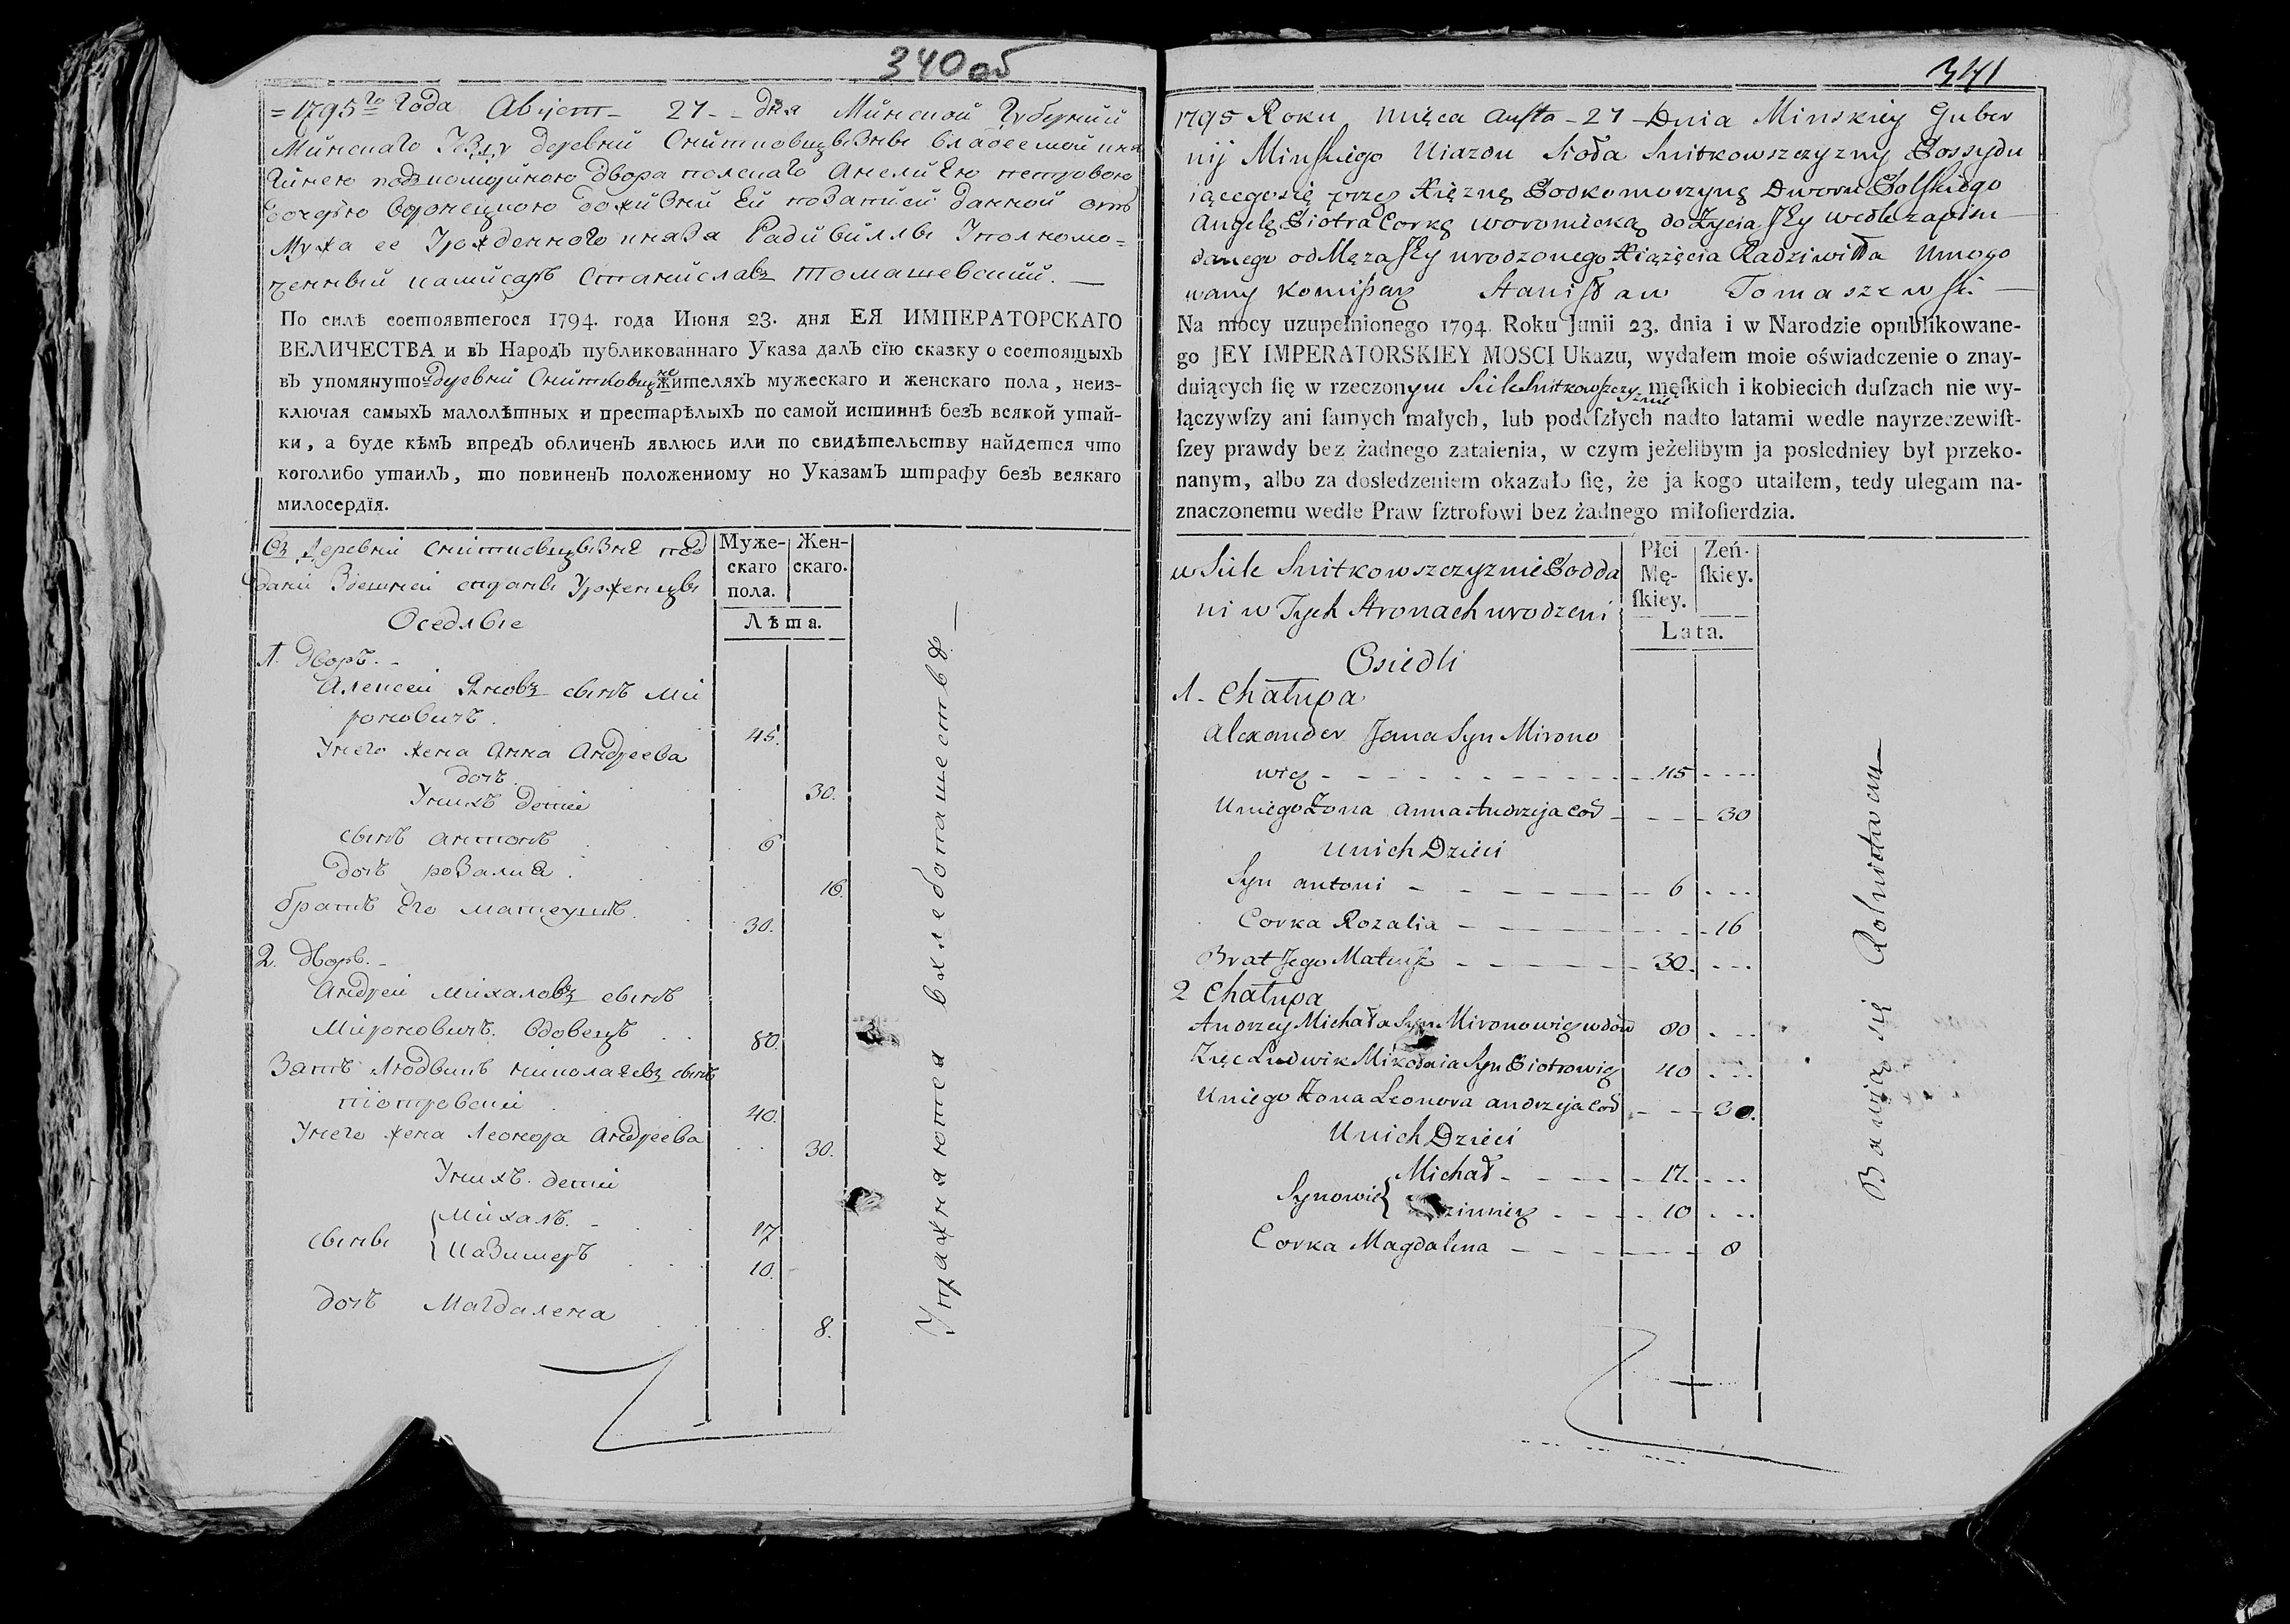 340 об
= 1795го Года Август - 27 - - дня Минской Губерний
Минскаго деревни Снитковщызны владеемой кня
гинею двора полскаго Анелиею петровою
дочерью данной отъ
Мужа ее Урожденного княза Радивиллы Уполномо=
ченный камисаръ Станиславъ Томашевский. —
По силѣ состоявшегося 1794. года Июня 23. дня ЕЯ ИМПЕРАТОРСКАГО
ВЕЛИЧЕСТВА и въ НародЪ публикованнаго Указа далЪ сїю сказку о состоящыхЪ
въ упомянуто деревни жителяхЪ мужескаго и женскаго пола, неиз-
ключая самыхЪ малолѣтныхъ и престарѣлыхЪ по самой истиннѣ безЪ всякой утай-
ки, а буде кѣмЪ впредЪ обличенЪ явлюсь или по свидѣтельству найдется что
коголибо утаилЪ, то повиненЪ положенному по УказамЪ штрафу безЪ всякаго
милосердїя.
Въ деревни снитковщызне под
дани здешней стороны Уроженцы
Оседлые
Муже-
скаго
пола.
Жен-
скаго.
Лѣта.
1. дворъ. -
Алексей Яновъ сынъ Ми
роновичъ. 45.
Унего жена Анна Андреева
дочъ. 30.
Унихъ дети
сынъ антонъ 6
дочъ розалия. 16.
братъ Его матеушъ. 30.
2. дворъ. -
Андрей михаловъ сынъ
Мироновичъ. вдовецъ 80.
Зять Людвикъ николаевъ сынъ
піотровски 40.
Унего жена Леонора Андреева 30.
Унихъ. дети
сыны { Михалъ. - 17
{ Казимеръ 10.
дочъ Магдалена 8.
Упражняются в хлебопашестве. —
341
1795 Roku Mięca Austa - 27 - Dnia Minskiey Guber
nij Minskiego Uiazdu Sioła Snitkowszczyzny Possydu
iącego się przez Xięznę Podkomorzynę Dworu Polskiego
Angelę Piotra Corkę woronicką do Życia Jey wedle zapisu
danego od Męza Jey urodzonego Xiążęcia Radziwiłła Umogo
wany Komisarz Stanisław Tomaszewski —
Na mocy uzupełnionego 1794. Roku Junii 23. dnia i w Narodzie opublikowane-
go JEY IMPERATORSKIEY MOSCI Ukazu, wydałem moie oświadczenie o znay-
duiących ſię w rzeczonym Siele Snitkowszczyznie męſkich i kobiecich duſzach nie wy-
łączywſzy ani ſamych małych, lub podeſzłych nadto latami wedle nayrzeczewiſt-
ſzey prawdy bez żadnego zataienia, w czym jeżelibym ja posledniey był przeko-
nanym, albo za dosledzeniem okazało ſię, że ja kogo utaiłem, tedy ulegam na-
znaczonemu wedle Praw ſztrofowi bez żadnego miłoſierdzia.
w Siele Snitkowszczyznie Podda
ni w Tych Stronach urodzeni
Osiedli
Płci
Mę-
ſkiey.
Zeń-
ſkiey.
Lata.
1. Chałupa
Alexander Jana Syn Mirono
wicz - 45
Uniego Żona anna Andrzeja Cor - 30
Unich Dzieci
Syn antoni - 6
Corka Rozalia - 16
Brat Jego Mateusz - 30.
2 Chałupa
Andrzey Michała Syn Mironowicz wdow 80
Zięc Ludwik Mikołaia Syn Piotrowicz 40
Uniego Żona Leonora andrzeja Cor - 30.
Unich Dzieci
Synowie { Michał - 17.
zimierz - 10
Corka Magdalena - 8
Bawią się Rolnictwem —